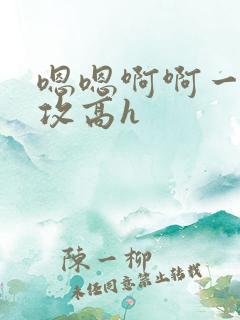 嗯嗯啊啊一
攻高h
陳一柳
未经同意禁止转载